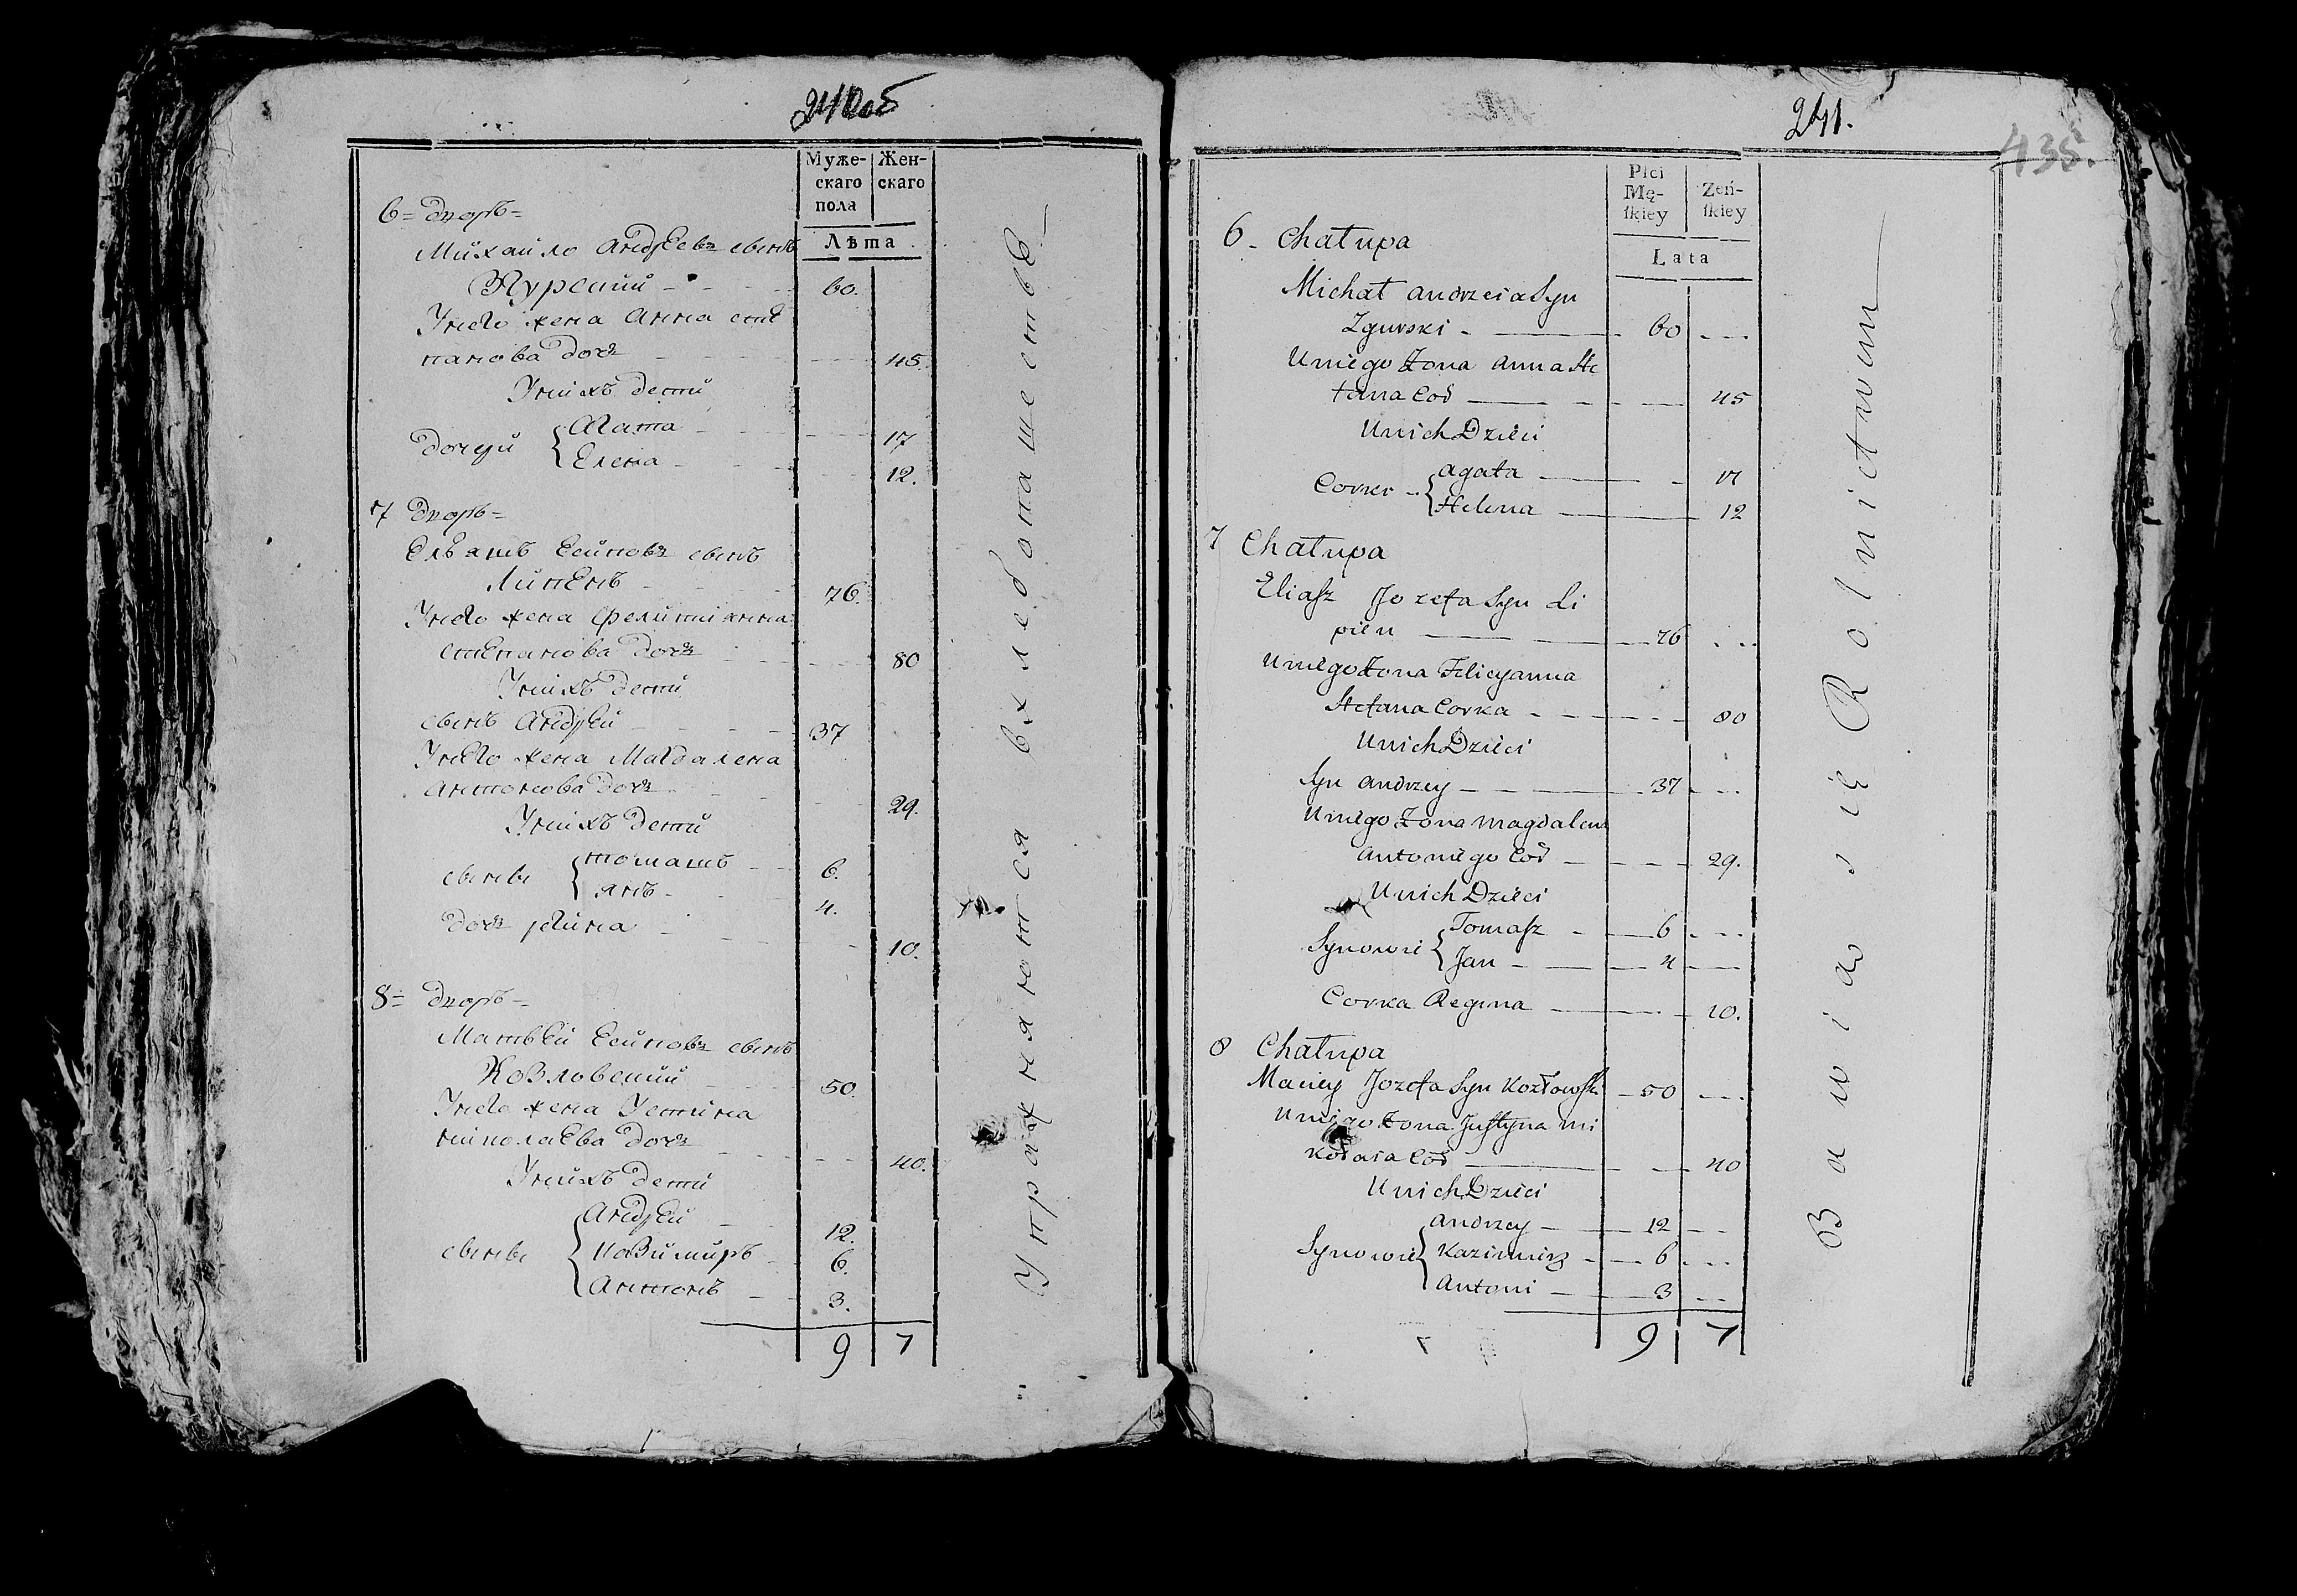 240об
Муже-
скаго
пола
Жен-
скаго
Лѣта
6 = Дворъ =
Михайло Андреевъ сынъ
Згурский - - 60.
Унего жена Анна сте
панова дочь - - - 45.
Унихъ дети
дочери { Агата - - 17
Елена - - 12.
7 Дворъ =
Ельяшъ Есиповъ сынъ
Липень - - 76.
Унего жена Фелициянна
степанова дочь - - 80
Унихъ дети
сынъ Андрей - - 37
Унего жена Магдалена
Антонова дочь - - 29.
Унихъ дети
сыны { томашъ - - 6.
янъ - - 4.
дочь регина - - 10.
8 = Дворъ =
Матвей Есиповъ сынъ
Козловский - - 50.
Унего жена Устина
николаева дочь - - 40.
Унихъ дети
сыны { Андрей - - 12.
Казимиръ - - 6.
Антонъ - - 3.
9 7
Упражняются въ хлебопашестве
241.
435.
Płci
Mę-
ſkiey
Zeń-
ſkiey
Lata
6 - Chałupa
Michał Andrzeia Syn
Zgurski - - 60
Uniego Żona Anna Ste
fana Cor - - 45
Unich Dzieci
Corki { Agata - - 17
Helena - - 12
7 Chałupa
Eliaſz Jozefa Syn Li
pien - - 76
Uniego Żona Felicyanna
Stefana Corka - - 80
Unich Dzieci
Syn Andrzey - - 37
Uniego Żona Magdalena
Antoniego Cor - - 29.
Unich Dzieci
Synowie { Tomaſz - - 6
Jan - - 4
Corka Regina - - 10.
8 Chałupa
Maciey Jozefa Syn Kozłowſki - 50
Uniego Żona Juſtyna Mi
kołaia Cor - - 40
Unich Dzieci
Synowie { Andrzey - - 12
Kazimierz - - 6
Antoni - - 3
9 7
Bawią się Rolnictwem